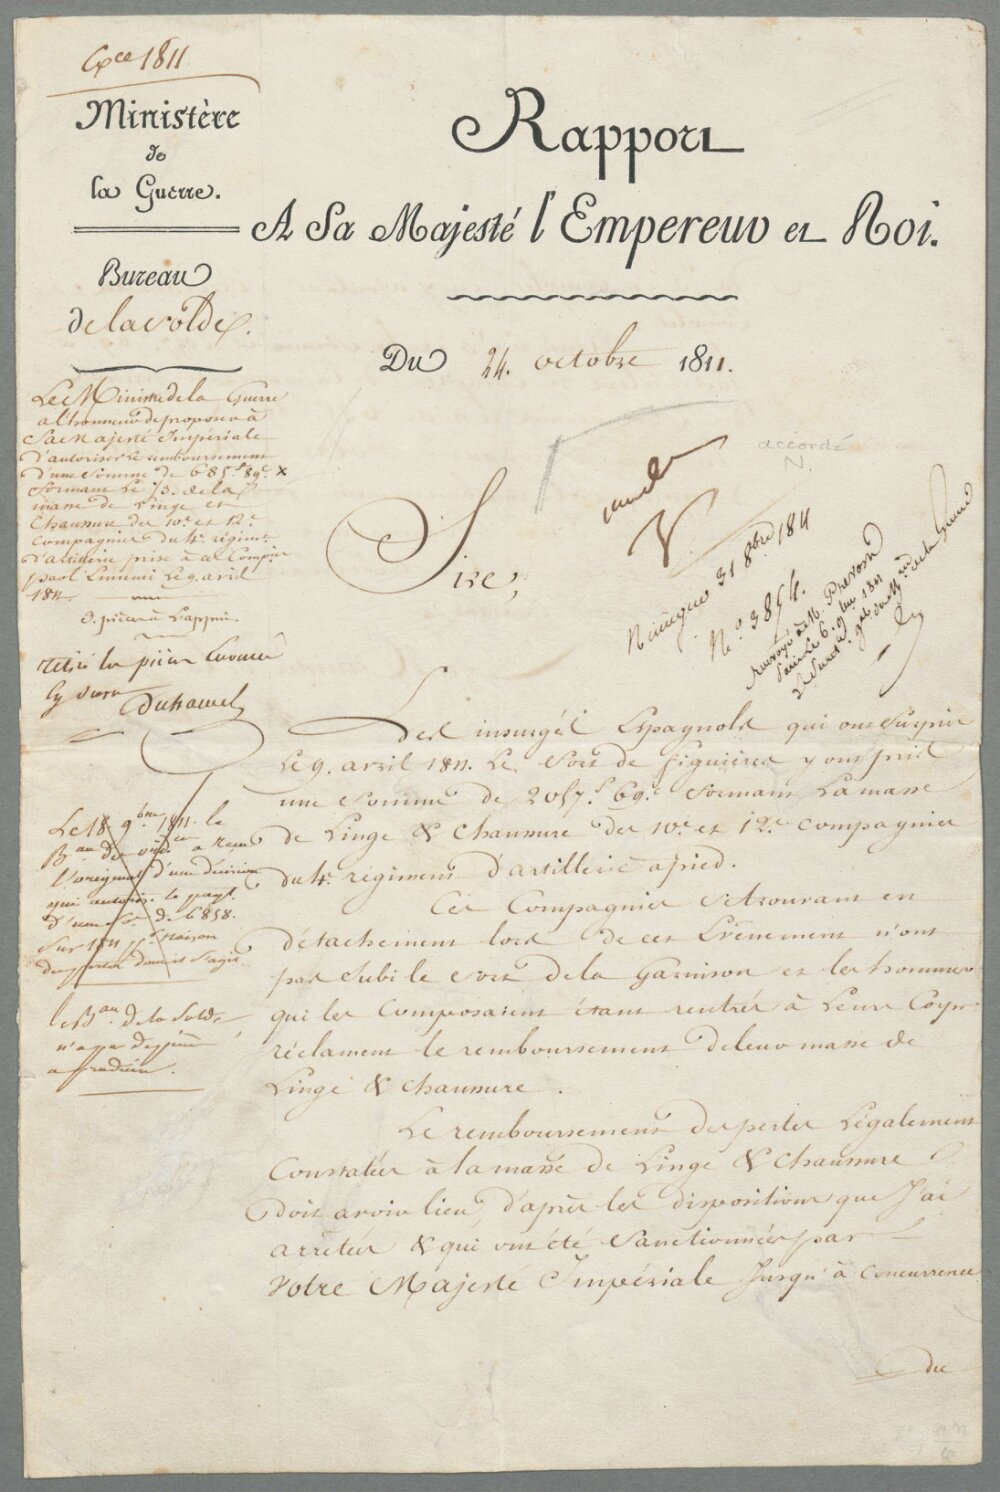 Exce 1811
Ministère
de
la Guerre.
Bureau
de la Solde.
Rapport
A Sa Majesté l'Empereur et Roi.
Du 24. octobre 1811.
Le Ministre de la Guerre
a l'honneur de proposer à
Sa Majesté Impériale
d'autoriser le remboursement
d'une Somme de 685f 89c x
formant le 1/3. de la
masse de Linge et
Chaussure des 10e et 12e
Compagnies du 4e régimt
d'artillerie prise à ces Compies
par l'Ennemi le 9. avril
1811.
3. pièces à l'appui.
retiré les pièces
Duhamel
Le 18 9bre 1811 le
Bau des a reçu
l'original d'une décision
qui autorise le payt
d'une Se de 6858.
Sur 1811 pr raison
de pertes
le Bau de la Solde
n'a pas de pièces
à produire.
accordé
N.
N
31 8bre 1811
No 3854.
renvoyé à M. Prevost
Paris le 6. 9bre 1811
de la Guerre
Sire,
Les insurgés Espagnols qui ont Surpris
le 9. avril 1811. Le Fort de Figuières y ont pris
une Somme de 2057.f 69.c formant La masse
de Linge & Chaussure des 10e et 12e compagnies
du 4e régiment d'artillerie à pied.
Ces Compagnies Se trouvant en
détachement lors de cet Evénement n'ont
pas Subi le Sort de la Garnison et les hommes
qui les Composaient étant rentrés à Leur Corps
réclament le remboursement de leur masse de
Linge & Chaussure.
Le remboursement des pertes Légalement
Constatées à la masse de Linge & Chaussure
doit avoir lieu, d'après les dispositions que J'ai
arrêtées & qui ont été Sanctionnées par
Votre Majesté Impériale Jusqu'à Concurrence
du